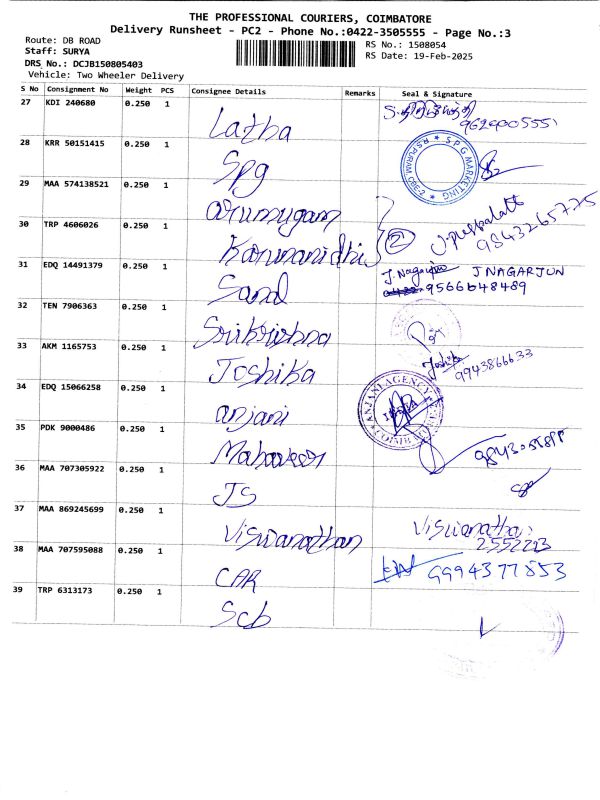 THE PROFESSIONAL COURIERS, COIMBATORE
Delivery Runsheet - PC2 - Phone No.:0422-3505555 - Page No.:3
Route: DB ROAD
RS No.: 1508054
Staff: SURYA
RS Date: 19-Feb-2025
DRS No.: DCJB150805403
Vehicle: Two Wheeler Delivery
S No Consignment No Weight PCS Consignee Details Remarks Seal & Signature
27 KDI 240680 0.250 1 Latha
28 KRR 50151415 0.250 1 Spg SPG MARKETING
29 MAA 574138521 0.250 1 arumugam
30 TRP 4606026 0.250 1 Karunanidhi 2 9843265775
31 EDQ 14491379 0.250 1 Sand J. Nagarjun J NAGARJUN
9566648489
32 TEN 7906363 0.250 1 Srikrishna
33 AKM 1165753 0.250 1 Joshika Joshika 9943866633
34 EDQ 15066258 0.250 1 anjani ANJANI AGENCY
35 PDK 9000486 0.250 1
36 MAA 707305922 0.250 1 JS
37 MAA 869245699 0.250 1 Viswanathan
2552223
38 MAA 707595088 0.250 1 CAR 9994377853
39 TRP 6313173 0.250 1 Scb